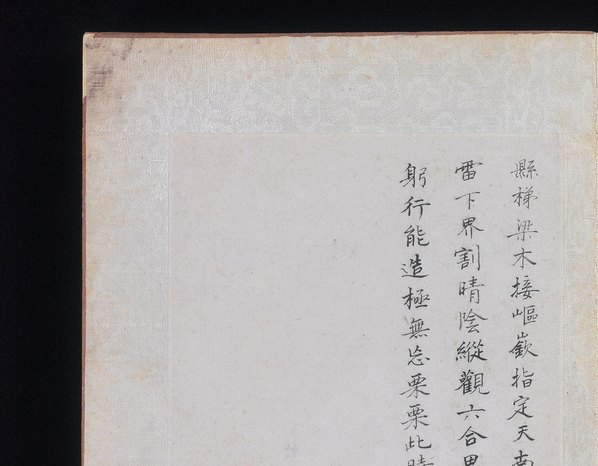 縣梯梁木接嶇嶔指定天南
雷下界割晴陰縱觀六合思
躬行能造極無忘栗栗此時